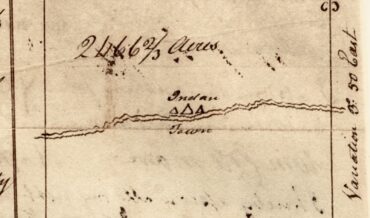 2466 2/3 Acres
Indian
Town
Variation 5°. 50 East